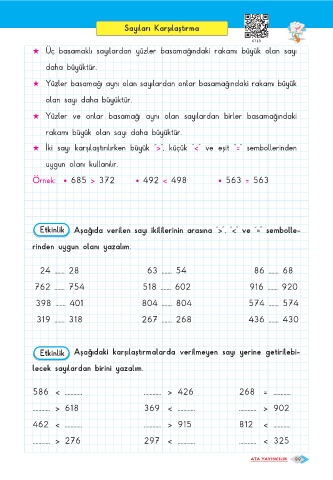 Sayıları Karşılaştırma
★ Üç basamaklı sayılardan yüzler basamağındaki rakamı büyük olan sayı
daha büyüktür.
★ Yüzler basamağı aynı olan sayılardan onlar basamağındaki rakamı büyük
olan sayı daha büyüktür.
★ Yüzler ve onlar basamağı aynı olan sayılardan birler basamağındaki
rakamı büyük olan sayı daha büyüktür.
★ İki sayı karşılaştırılırken büyük ">", küçük "<" ve eşit "=" sembollerinden
uygun olanı kullanılır.
Örnek: • 685 > 372 • 492 < 498 • 563 = 563
Etkinlik Aşağıda verilen sayı ikililerinin arasına ">", "<" ve "=" sembolle-
rinden uygun olanı yazalım.
24 ....... 28 63 ....... 54 86 ....... 68
762 ....... 754 518 ....... 602 916 ....... 920
398 ....... 401 804 ....... 804 574 ....... 574
319 ....... 318 267 ....... 268 436 ....... 430
Etkinlik Aşağıdaki karşılaştırmalarda verilmeyen sayı yerine getirilebi-
lecek sayılardan birini yazalım.
586 < ............ ............ > 426 268 = ............
............ > 618 369 < ............ ............ > 902
462 < ............ ............ > 915 812 < ............
............ > 276 297 < ............ ............ < 325
ATA YAYINCILIK